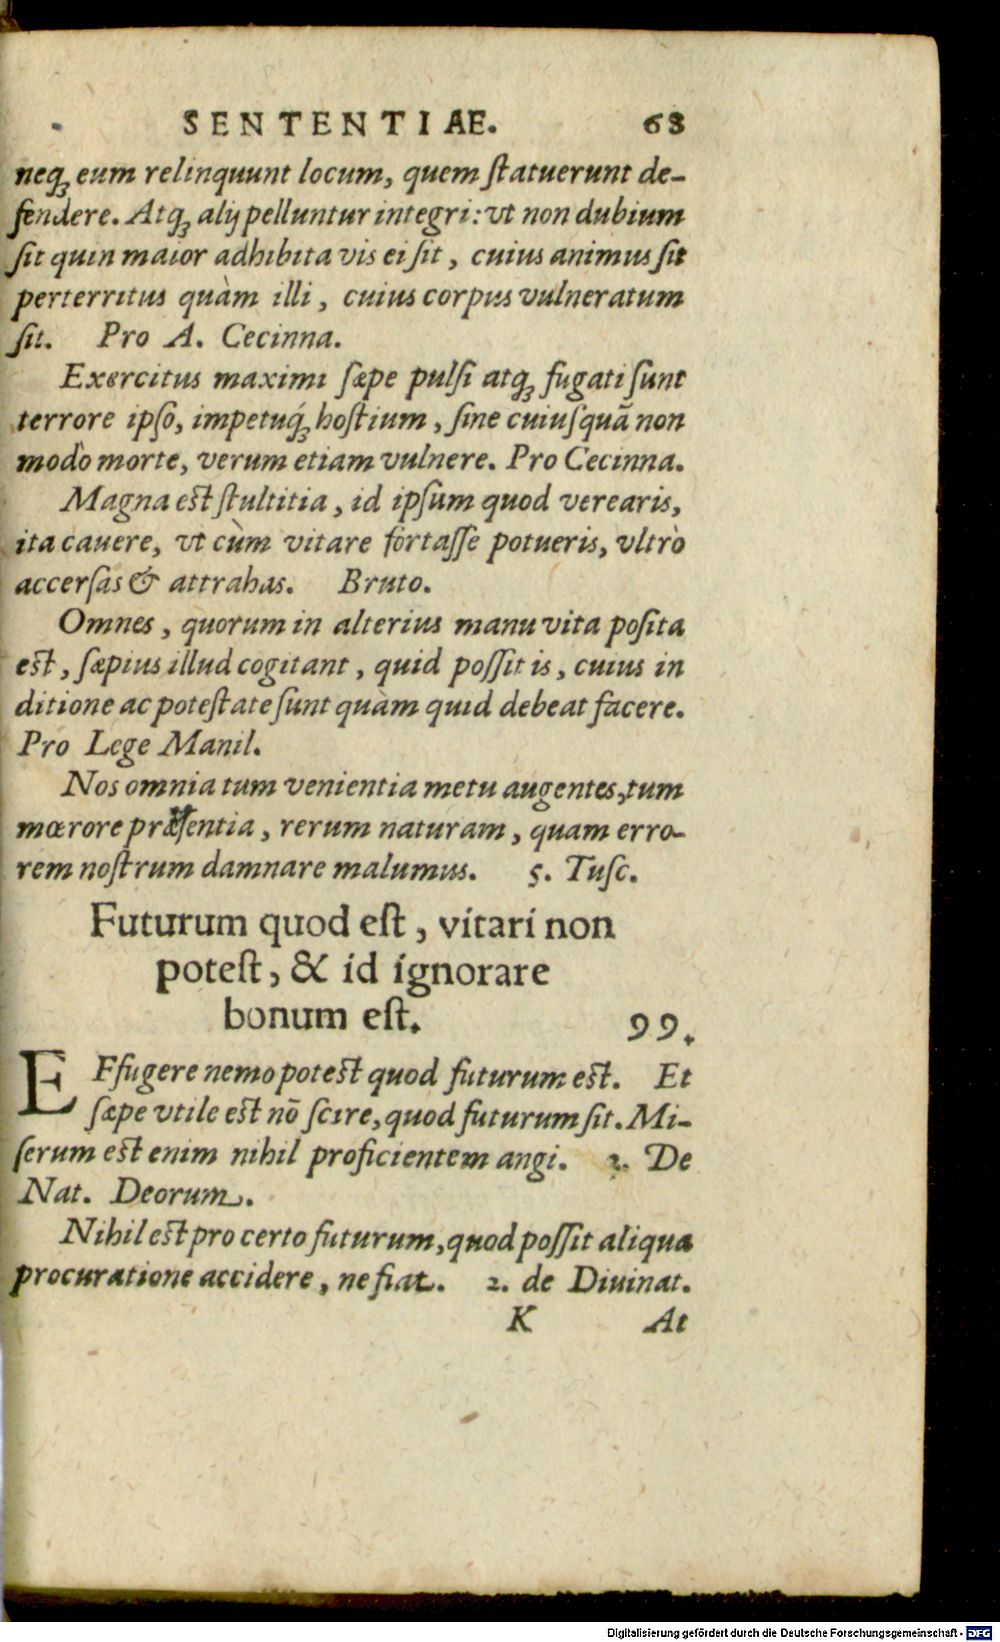 SENTENTIAE. 68
neq́ꝫ eum relinquunt locum, quem ſtatuerunt de-
fendere. Atqꝫ alij pelluntur integri: vt non dubium
ſit quin maior adhibita vis ei ſit, cuius animus ſit
perterritus quàm illi, cuius corpus vulneratum
ſit. Pro A. Cecinna.
Exercitus maximi ſæpe pulſi atqꝫ fugati ſunt
terrore ipſo, impetuq́ꝫ hoſtium, ſine cuiuſquā non
modo morte, verum etiam vulnere. Pro Cecinna.
Magna eſt ſtultitia, id ipſum quod verearis,
ita cauere, vt cùm vitare fortaſſe potueris, vltrò
accerſas & attrahas. Bruto.
Omnes, quorum in alterius manu vita poſita
eſt, ſæpius illud cogitant, quid poſſit is, cuius in
ditione ac poteſtate ſunt quàm quid debeat facere.
Pro Lege Manil.
Nos omnia tum venientia metu augentes, tum
mœrore præſentia, rerum naturam, quam erro-
rem noſtrum damnare malumus. 5. Tuſc.
Futurum quod eſt, vitari non
poteſt, & id ignorare
bonum eſt. 99.
EFfugere nemo poteſt quod futurum eſt. Et
ſæpe vtile eſt nō ſcire, quod futurum ſit. Mi-
ſerum eſt enim nihil proficientem angi. 2. De
Nat. Deorum.
Nihil eſt pro certo futurum, quod poſſit aliqua
procuratione accidere, ne fiat. 2. de Diuinat.
K At
Digitalisierung gefördert durch die Deutsche Forschungsgemeinschaft - DFG